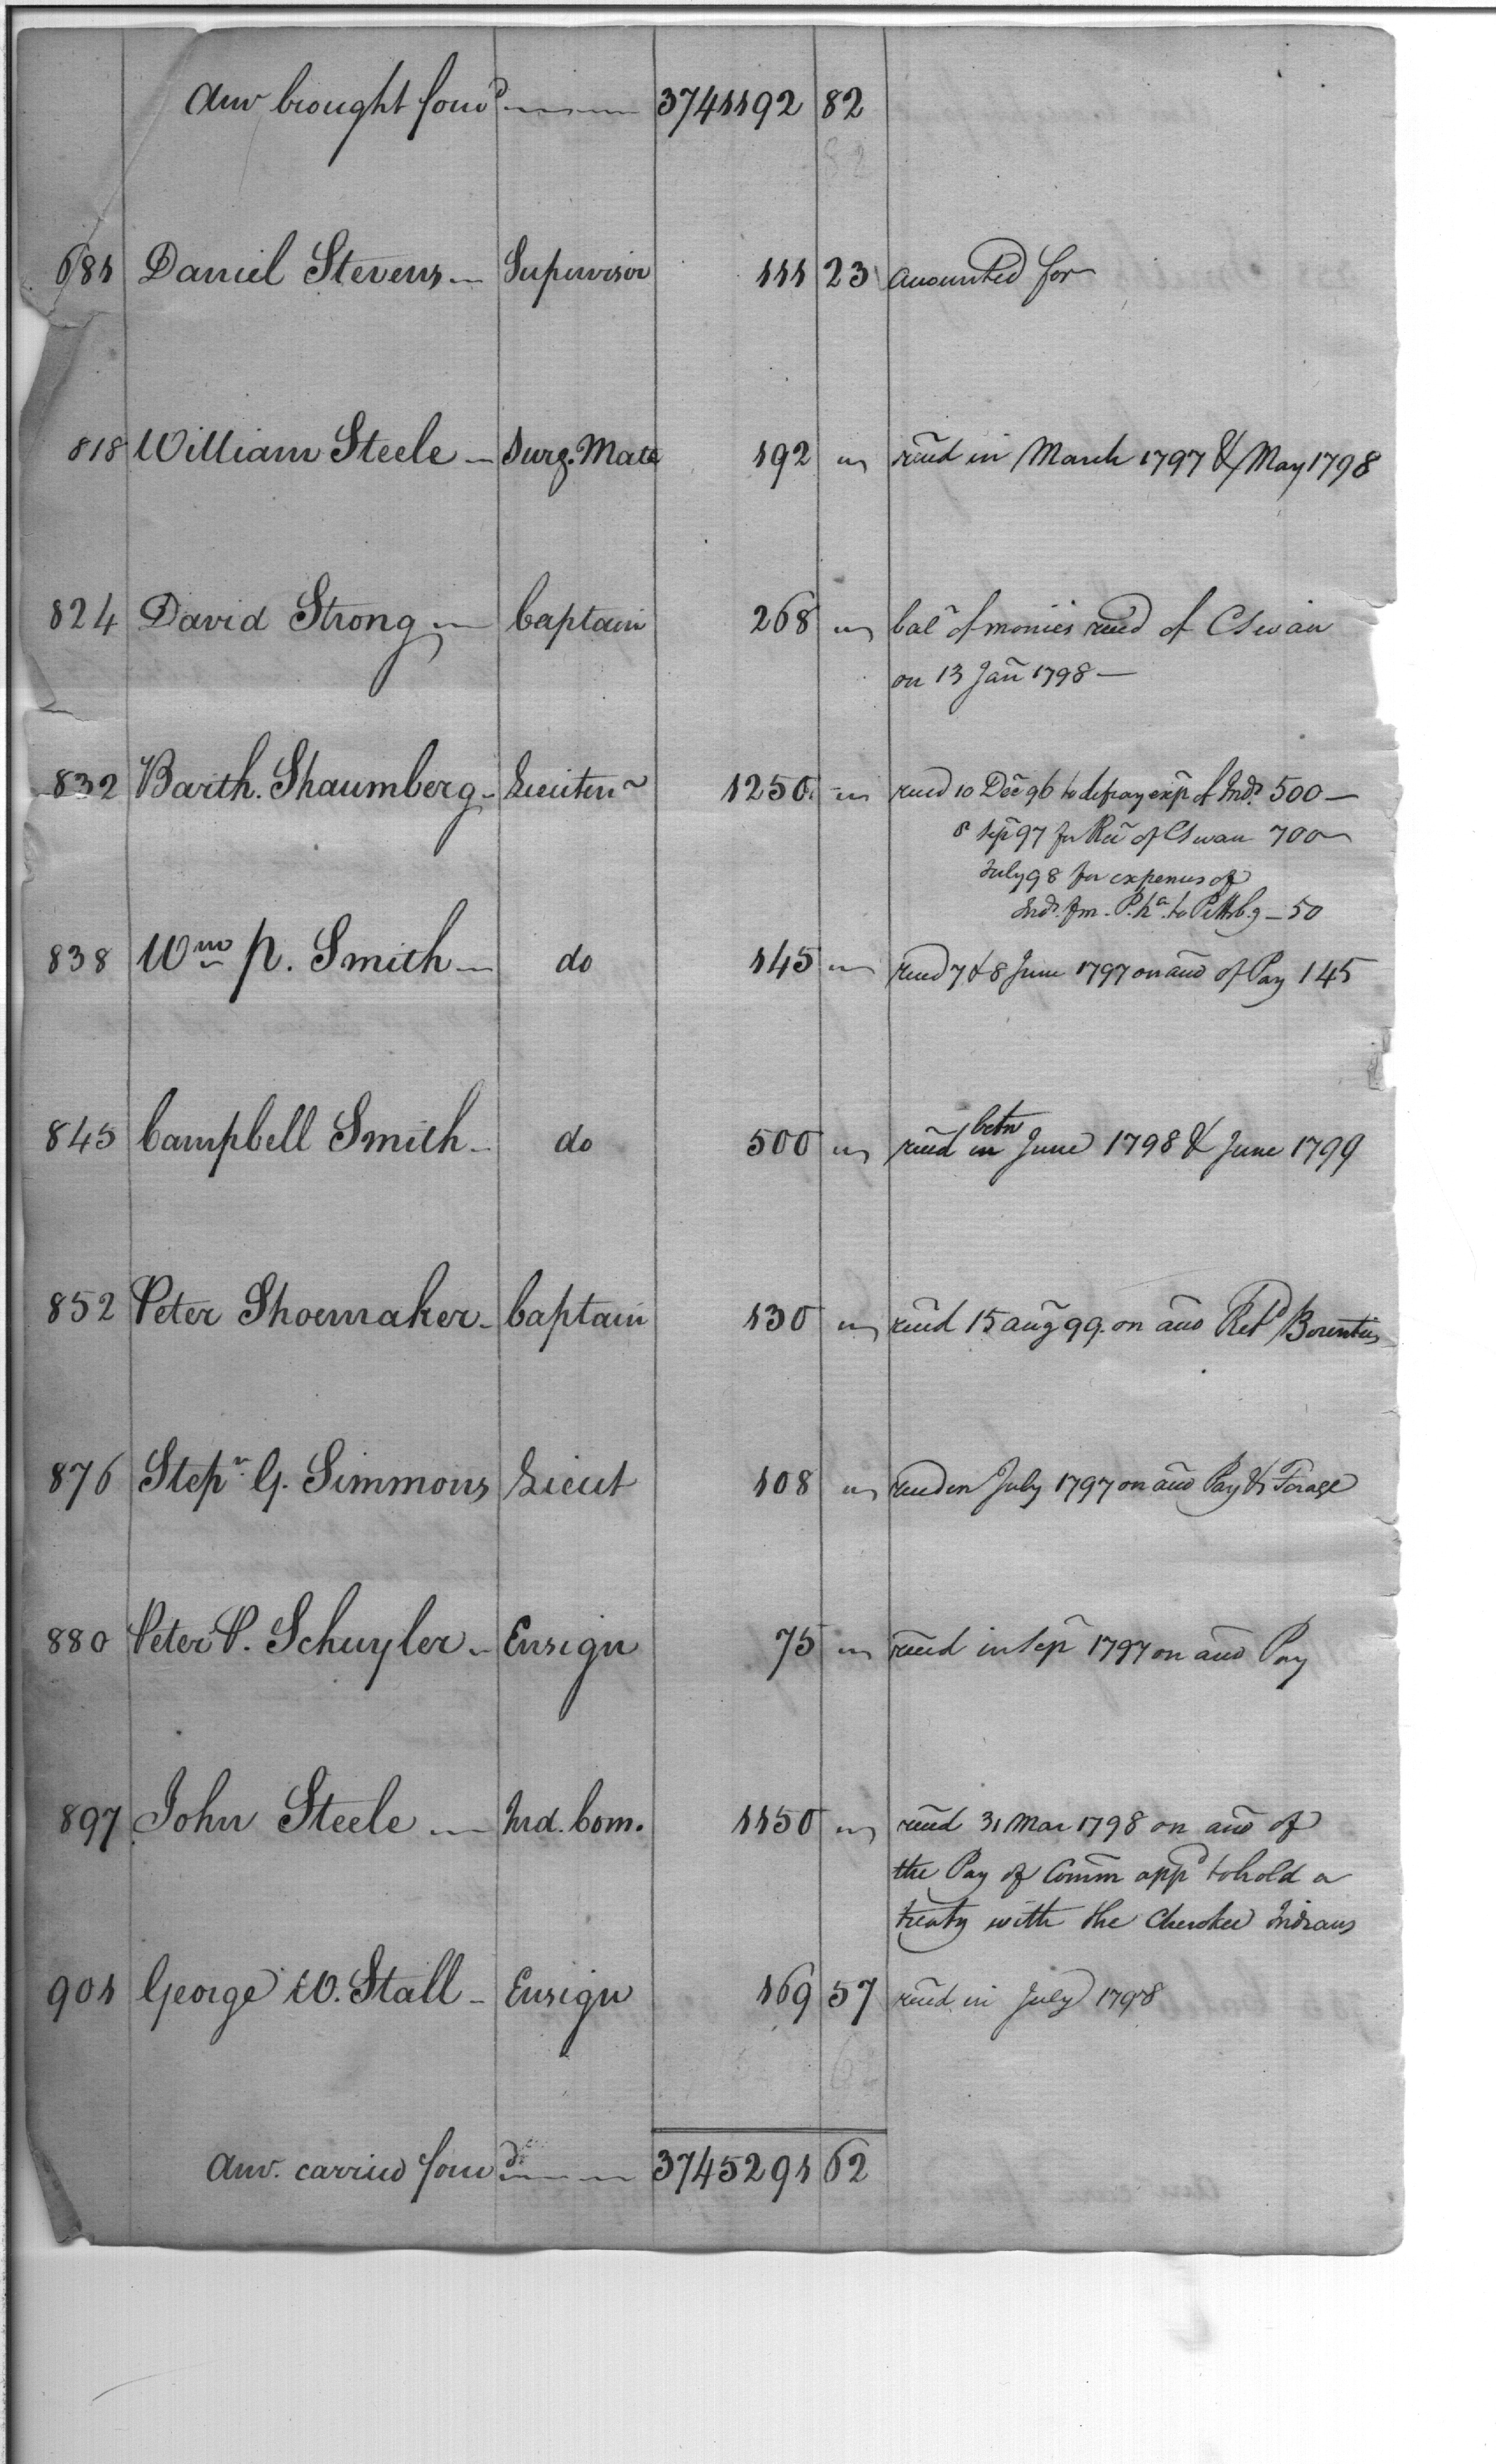 Amo brought forwd 3741192 82
82
681 Daniel Stevens Supervisor 111 23 accounted for
818 William Steele Surg. Mate 192 " recd in March 1797 & May 1798
824 David Strong Captain 268 " bale of monies recd of C Swan
on 13 Jan 1798 —
832 Barth. Shaumberg Lieuten 1250 " recd 10 Dec 96 to defray exp of Inds. 500 —
8 Sep 97 for Rec of C Swan 700
July 98 for expenses of
Inds. fm. P.ha to Pittsb.g — 50
838 Wm P. Smith do 145 " recd 7 & 8 June 1797 on acco of Pay 145
betn
845 Campbell Smith do 500 " recd in June 1798 & June 1799
852 Peter Shoemaker Captain 130 " recd 15 aug 99. on acco Retd Bounties
876 Stepn G. Simmons Lieut 108 " recd in July 1797 on acco Pay & Forage
880 Peter P. Schuyler Ensign 75 " recd in Sep 1797 on acco Pay
897 John Steele Ind. Com. 1150 " recd 31 Mar 1798 on acco of
the Pay of Comm appd to hold a
treaty with the Cherokee Indians
901 George W. Stall Ensign 169 57 recd in July 1798
62
Amo. carried forwd 3745291 62